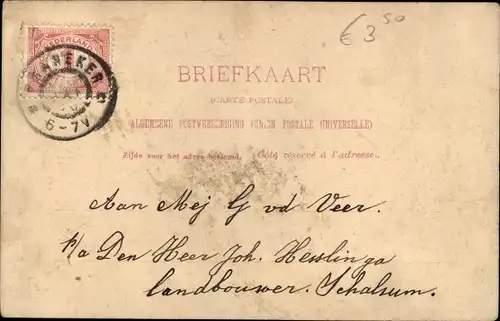 € 3 50
NEDERLAND
FRANEKER
6-7V
BRIEFKAART
(CARTE POSTALE)
ALGEMEENE POSTVEREENIGING (UNION POSTALE UNIVERSELLE)
Zijde voor het adres bestemd. (Côté réservé à l'adresse.
Aan Mej G vd Veer.
p/a Den Heer Joh. Hesslinga
landbouwer. Schalsum.